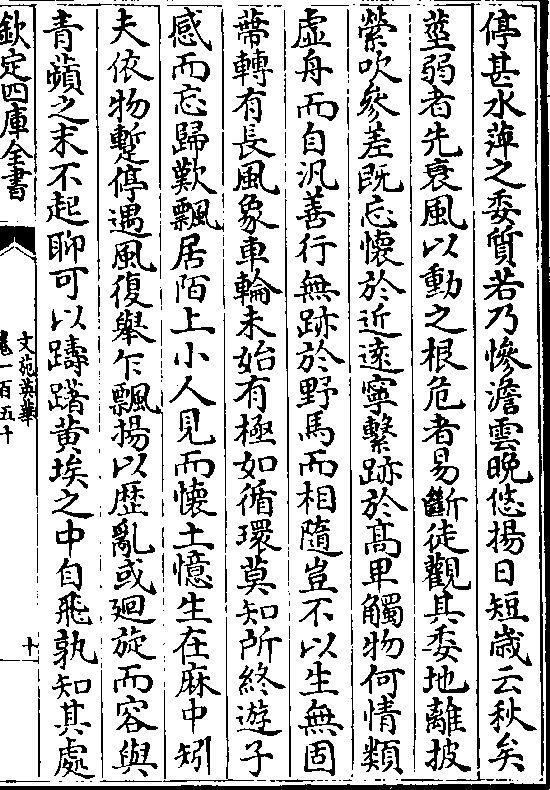 停甚水萍之委質若乃慘澹雲晚悠揚日短歳云秋矣
莖弱者先衰風以動之根危者易斷徒觀其委地離披
縈吹參差既忘懷於近遠寧繫跡於髙卑觸物何情類
虚舟而自汎善行無跡於野馬而相隨豈不以生無固
蔕轉有長風象車輪未始有極如循環莫知所終遊子
感而忘歸歎飄居陌上小人見而懐土憶生在麻中矧
夫依物蹔停遇風復舉乍飄揚以歴亂或廻旋而容與
青蘋之末不起聊可以躊躇黄埃之中自飛孰知其處
欽定四庫全書
文苑英華
卷一百五十
十